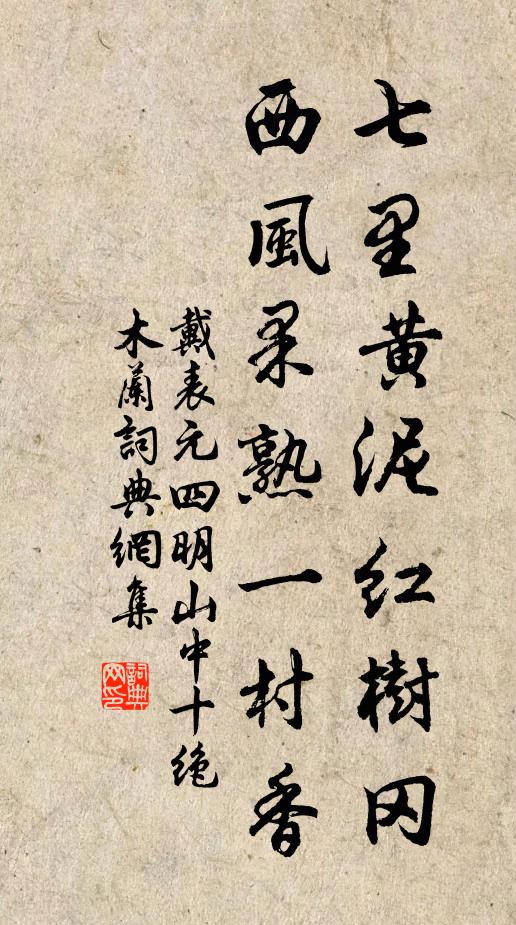 七里黄泥红樹冈
西風果熟一村香
戴表元四明山中十绝
木蘭詞典網集
詞典
网印